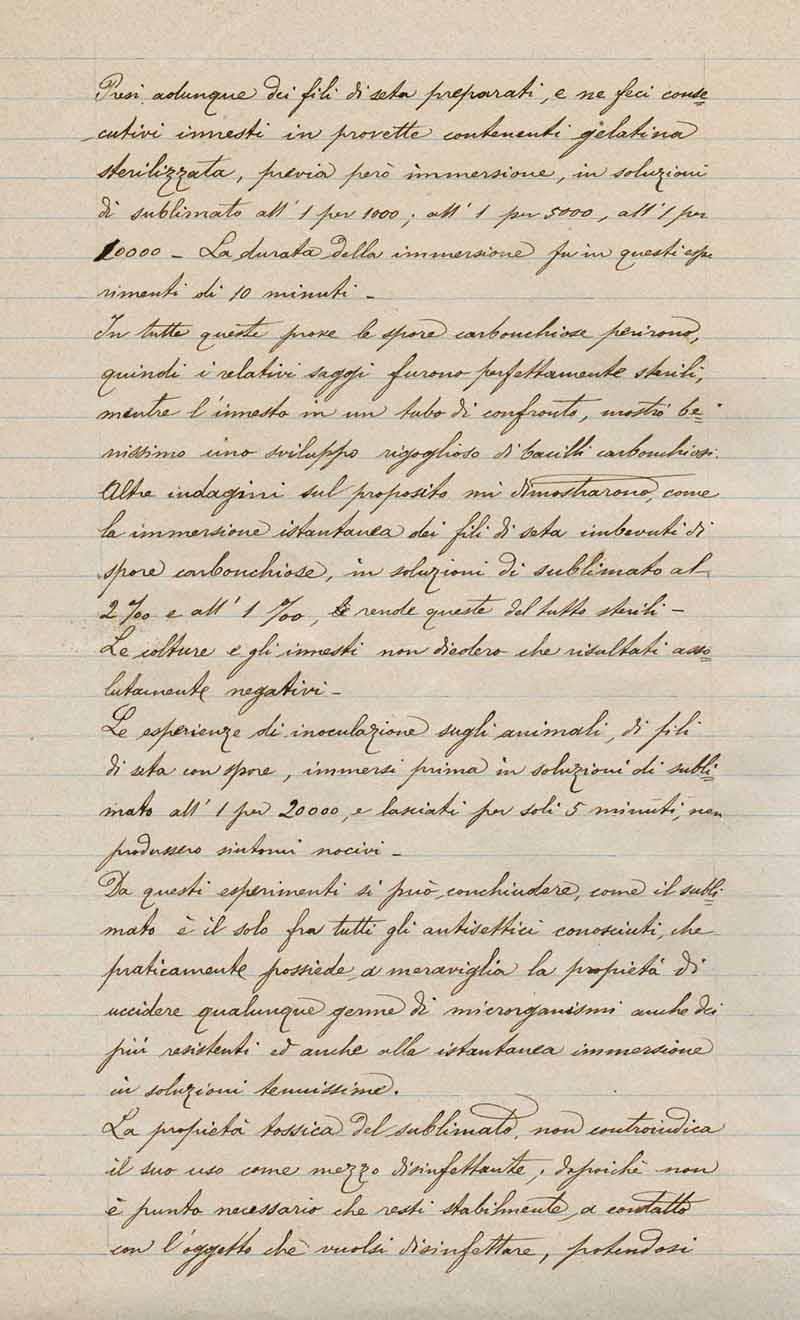 Presi adunque dei fili di seta preparati, e ne feci conse=
cutivi innesti in provette contenenti gelatina
sterilizzata, previa però immersione, in soluzioni
di sublimato all' 1 per 1000; all' 1 per 5000, all' 1 per
10000 - La durata della immersione fu in questi espe
rimenti di 10 minuti -
In tutte queste prove le spore carbonchiose perirono,
quindi i relativi saggi furono perfettamente sterili,
mentre l'innesto in un tubo di confronto, mostrò be=
nissimo uno sviluppo rigoglioso di bacilli carbonchiosi.
Altre indagini sul proposito mi dimostrarono, come
la immersione istantanea dei fili di seta imbevuti di
spore carbonchiose, in soluzioni di sublimato al
2 ‰ e all' 1 ‰, le rende queste del tutto sterili -
Le colture e gli innesti non diedero che risultati asso=
lutamente negativi -
Le esperienze di inoculazione sugli animali, di fili
di seta con spore, immersi prima in soluzioni di subli=
mato all' 1 per 20000, e lasciati per soli 5 minuti, non
produssero sintomi nocivi -
Da questi esperimenti si può conchiudere, come il subli=
mato è il solo fra tutti gli antisettici conosciuti, che
praticamente possiede a meraviglia la propietà di
uccidere qualunque germe di microrganismi anche dei
più resistenti ed anche alla istantanea immersione
in soluzioni tenuissime.
La propietà tossica del sublimato, non controindica
il suo uso come mezzo disinfettante, dapoichè non
è punto necessario che resti stabilmente a contatto
con l'oggetto che vuolsi disinfettare, potendosi